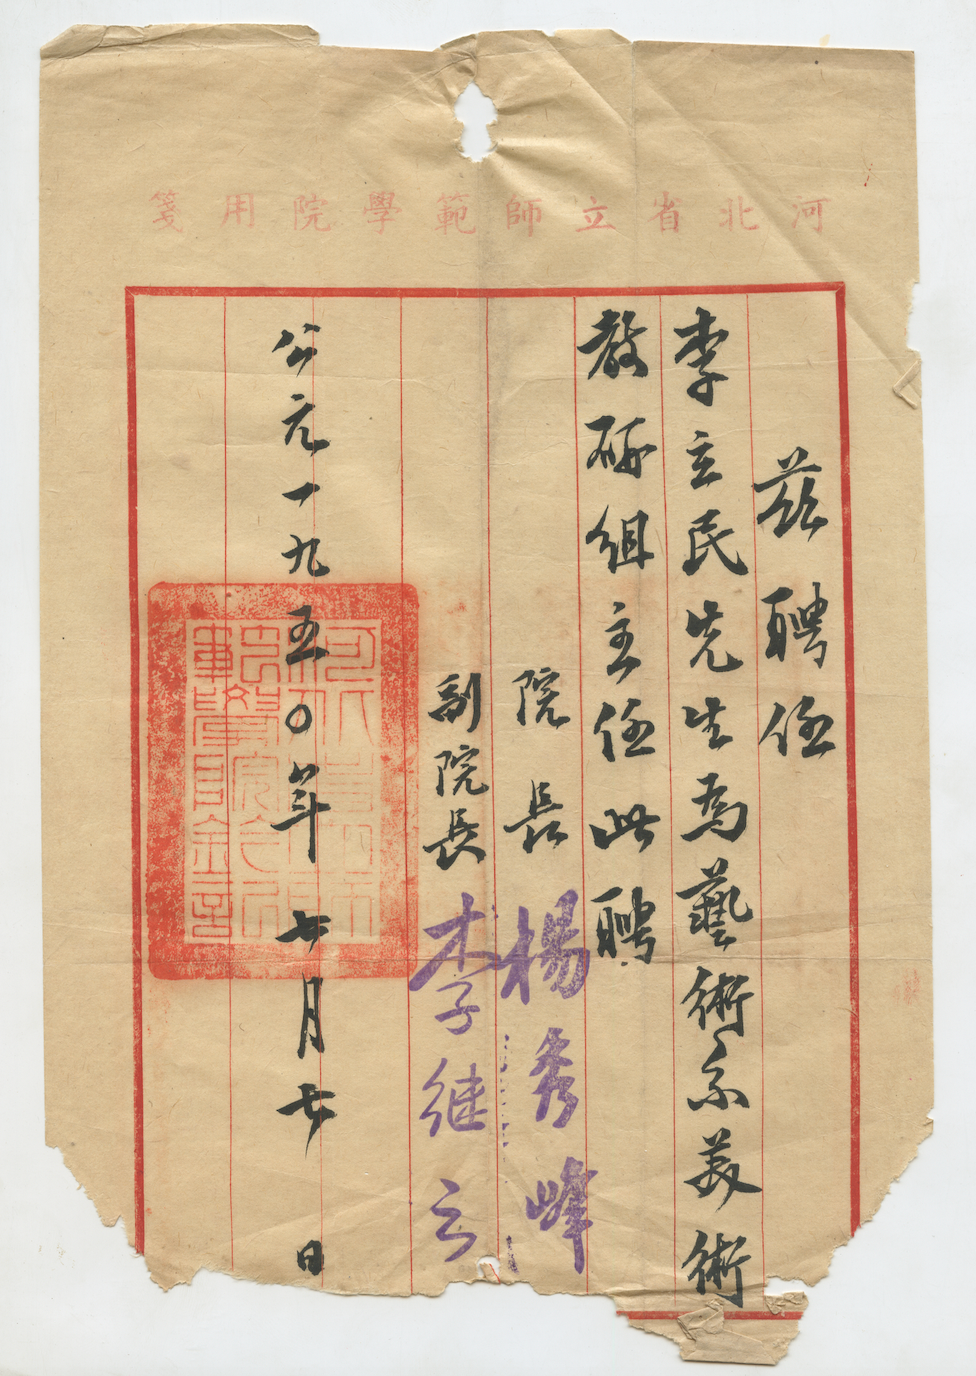 河北省立師範學院用箋
兹聘任
李立民先生為藝術系美術
教研組主任此聘
院長 楊秀峰
副院長 李继云
公元一九五〇年七月七日